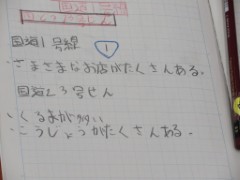 国道1号線 ①
・さまざまなお店がたくさんある。
国道23号せん
・くるまが多い
・こうじょうがたくさんある。